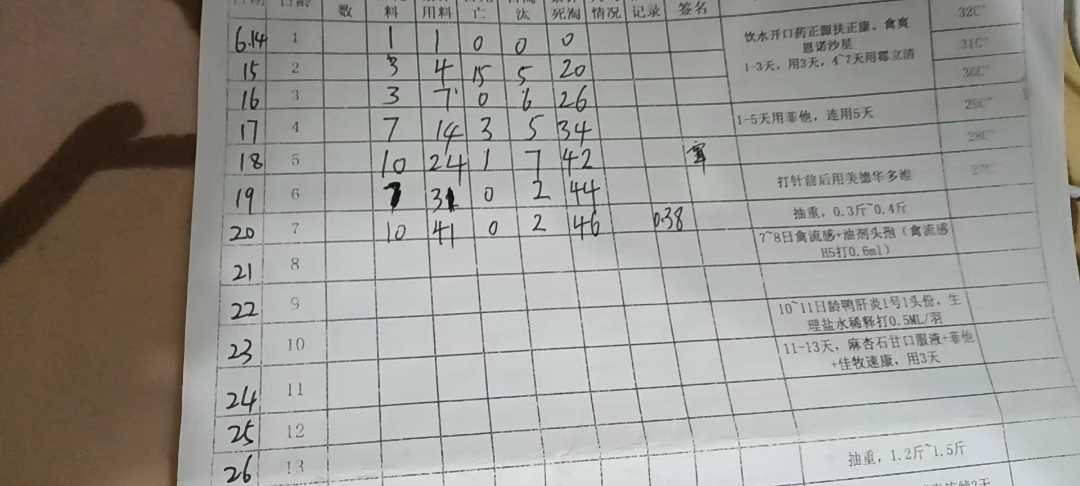 日期 日龄 数 料 用料 亡 汰 死淘 情况 记录 签名
6.14 1 1 1 0 0 0
饮水开口药正源扶正康、禽爽
恩诺沙星
1-3天，用3天，4~7天用霉立清
32C°
15 2 3 4 15 5 20
31C°
16 3 3 7 0 6 26
30C°
17 4 7 14 3 5 34
1-5天用菲他，连用5天
29C°
18 5 10 24 1 7 42
28C°
19 6 7 31 0 2 44
打针前后用美德华多维
27C°
20 7 10 41 0 2 46 0.38
抽重，0.3斤~0.4斤
21 8
7~8日禽流感+油剂头孢（禽流感
H5打0.6ml）
22 9
10~11日龄鸭肝炎1号1头份，生
理盐水稀释打0.5ML/羽
23 10
11-13天，麻杏石甘口服液+菲他
+佳牧速康，用3天
24 11
25 12
26 13
抽重，1.2斤~1.5斤